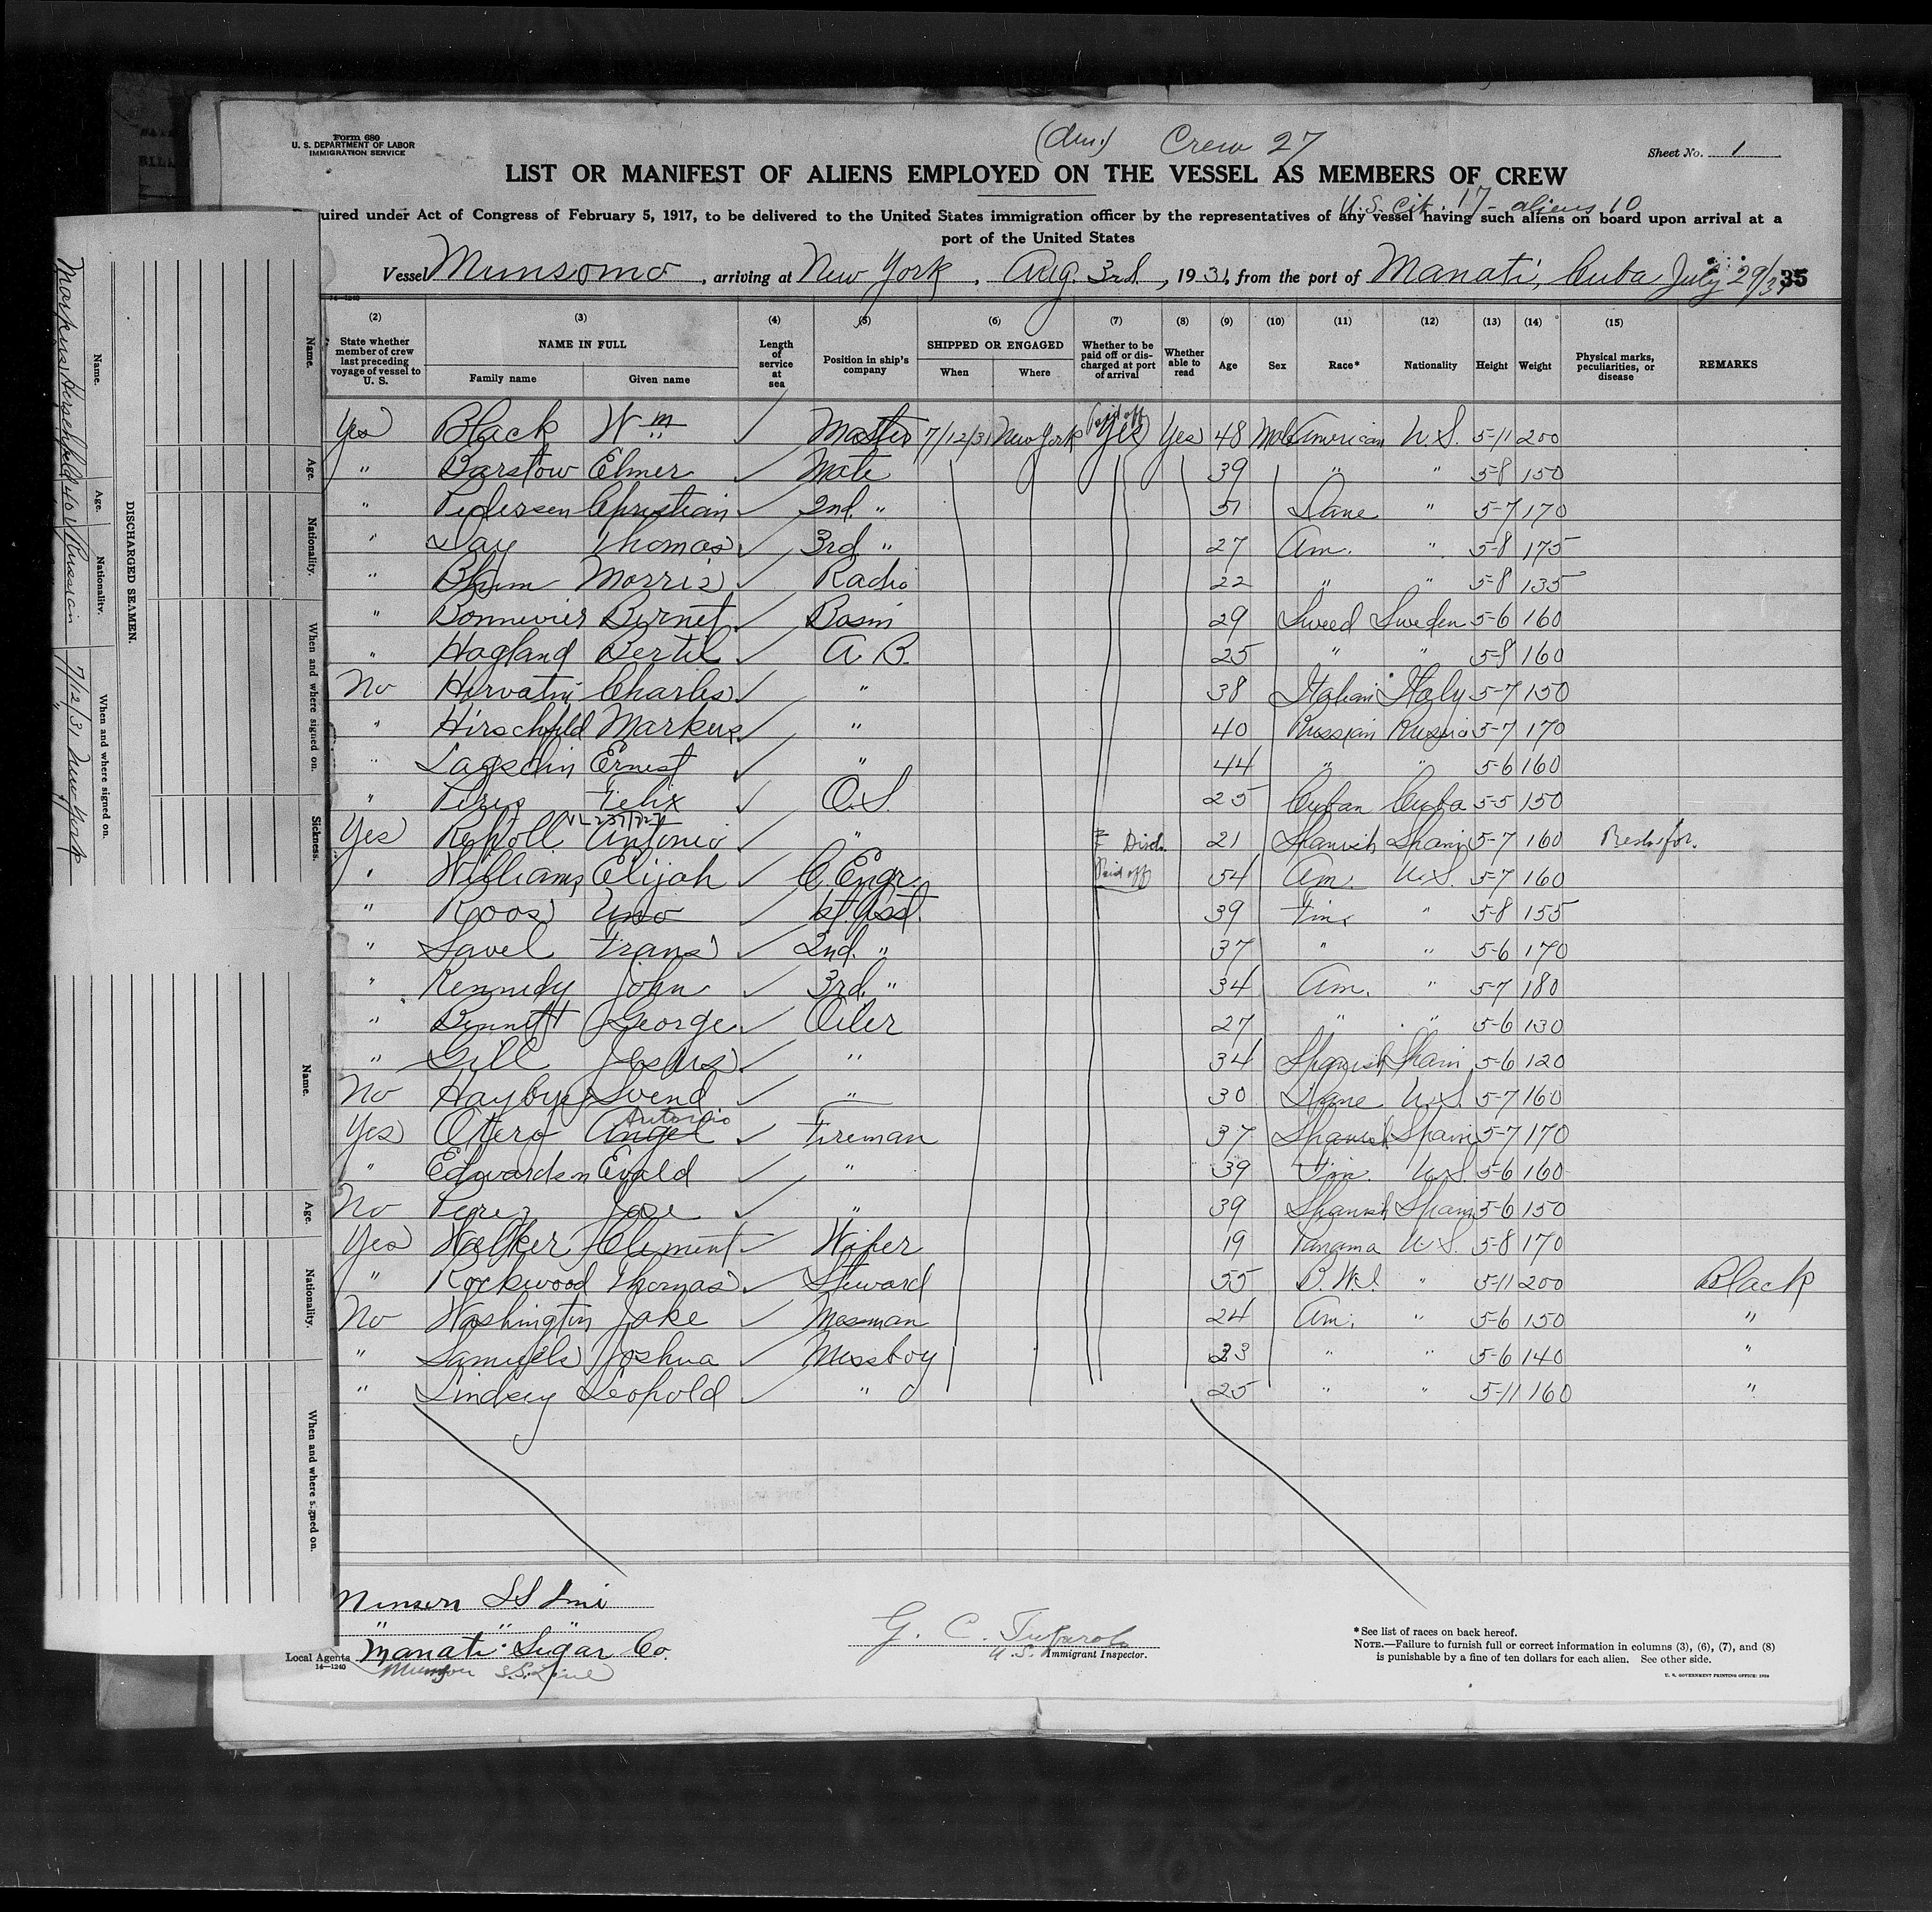 Form 680
U. S. DEPARTMENT OF LABOR
IMMIGRATION SERVICE
(Am.) Crew 27
Sheet No. 1
LIST OR MANIFEST OF ALIENS EMPLOYED ON THE VESSEL AS MEMBERS OF CREW
U.S. Cit. 17 - aliens 10
uired under Act of Congress of February 5, 1917, to be delivered to the United States immigration officer by the representatives of any vessel having such aliens on board upon arrival at a
port of the United States
Vessel Munsomo, arriving at New York, Aug. 3rd, 1931, from the port of Manati, Cuba July 29/31 35
14—1240
(2) (3) (4) (5) (6) (7) (8) (9) (10) (11) (12) (13) (14) (15)
State whether member of crew last preceding voyage of vessel to U. S. NAME IN FULL Family name Given name Length of service at sea Position in ship's company SHIPPED OR ENGAGED When Where Whether to be paid off or discharged at port of arrival Whether able to read Age Sex Race* Nationality Height Weight Physical marks, peculiarities, or disease REMARKS
Yes Black Wm ✓ Master 7/12/31 New York Paid off Yes Yes 48 Male American U.S. 5-11 200
" Barstow Elmer ✓ Mate 39 " " 5-8 150
" Pedersen Christian ✓ 2nd. " 51 Dane " 5-7 170
" Day Thomas ✓ 3rd. " 27 Am. " 5-8 175
" Blum Morris ✓ Radio 22 " " 5-8 135
" Bonnevier Bernet ✓ Bosin 29 Sweed Sweden 5-6 160
" Hagland Bertil ✓ A B. 25 " " 5-8 160
No Hervatin Charles ✓ " 38 Italian Italy 5-7 150
" Hirschfeld Markus ✓ " 40 Russian Russia 5-7 170
" Lagsdin Ernest ✓ " 44 " " 5-6 160
" Peres Felix ✓ O.S. 25 Cuban Cuba 5-5 150
Yes Antonio ✓ " Disch. 21 Spanish Spain 5-7 160
" Williams Elijah ✓ C. Engr. Paid off 54 Am. U.S. 5-7 160
" Roos Uno ✓ 1st. Asst. 39 Fin. " 5-8 155
" Savel Frans ✓ 2nd. " 37 " " 5-6 170
" Kennedy John ✓ 3rd. " 34 Am. " 5-7 180
" Bennett George ✓ Oiler 27 " " 5-6 130
" Gill Jesus ✓ " 34 Spanish Spain 5-6 120
No Haybye Svend ✓ " 30 Dane U.S. 5-7 160
Antonio
Yes Otero Angel ✓ Fireman 37 Spanish Spain 5-7 170
" Edwardsn Evald ✓ " 39 Fin. U.S. 5-6 160
No Perez Jose ✓ " 39 Spanish Spain 5-6 150
Yes Walker Clement ✓ Wiper 19 Panama U.S. 5-8 170
" Rockwood Thomas ✓ Steward 55 B.W.I. " 5-11 200 Black
No Washington Jake ✓ Messman 24 Am. " 5-6 150 "
" Samuels Joshua ✓ Messboy 23 " " 5-6 140 "
" Lindsey Leopold ✓ " 25 " " 5-11 160 "
Munson S S Line
" " "
Local Agents Manati Sugar Co.
14—1240
Munson S.S. Line
G. C.
U. S. Immigrant Inspector.
*See list of races on back hereof.
NOTE.—Failure to furnish full or correct information in columns (3), (6), (7), and (8)
is punishable by a fine of ten dollars for each alien. See other side.
U. S. GOVERNMENT PRINTING OFFICE: 1929
DISCHARGED SEAMEN.
Name. Age. Nationality. When and where signed on.
Markus Herschfeld 40 Russian 7/12/31 New York
Name. Age. Nationality. When and where signed on. Sickness.
Name. Age. Nationality. When and where signed on.